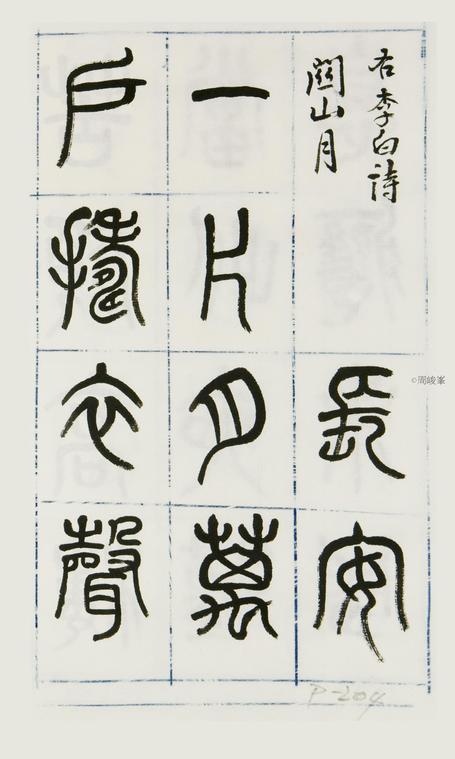 右李白詩
關山月
長安
一片月萬
戶擣衣聲
P-204
©周峻峯